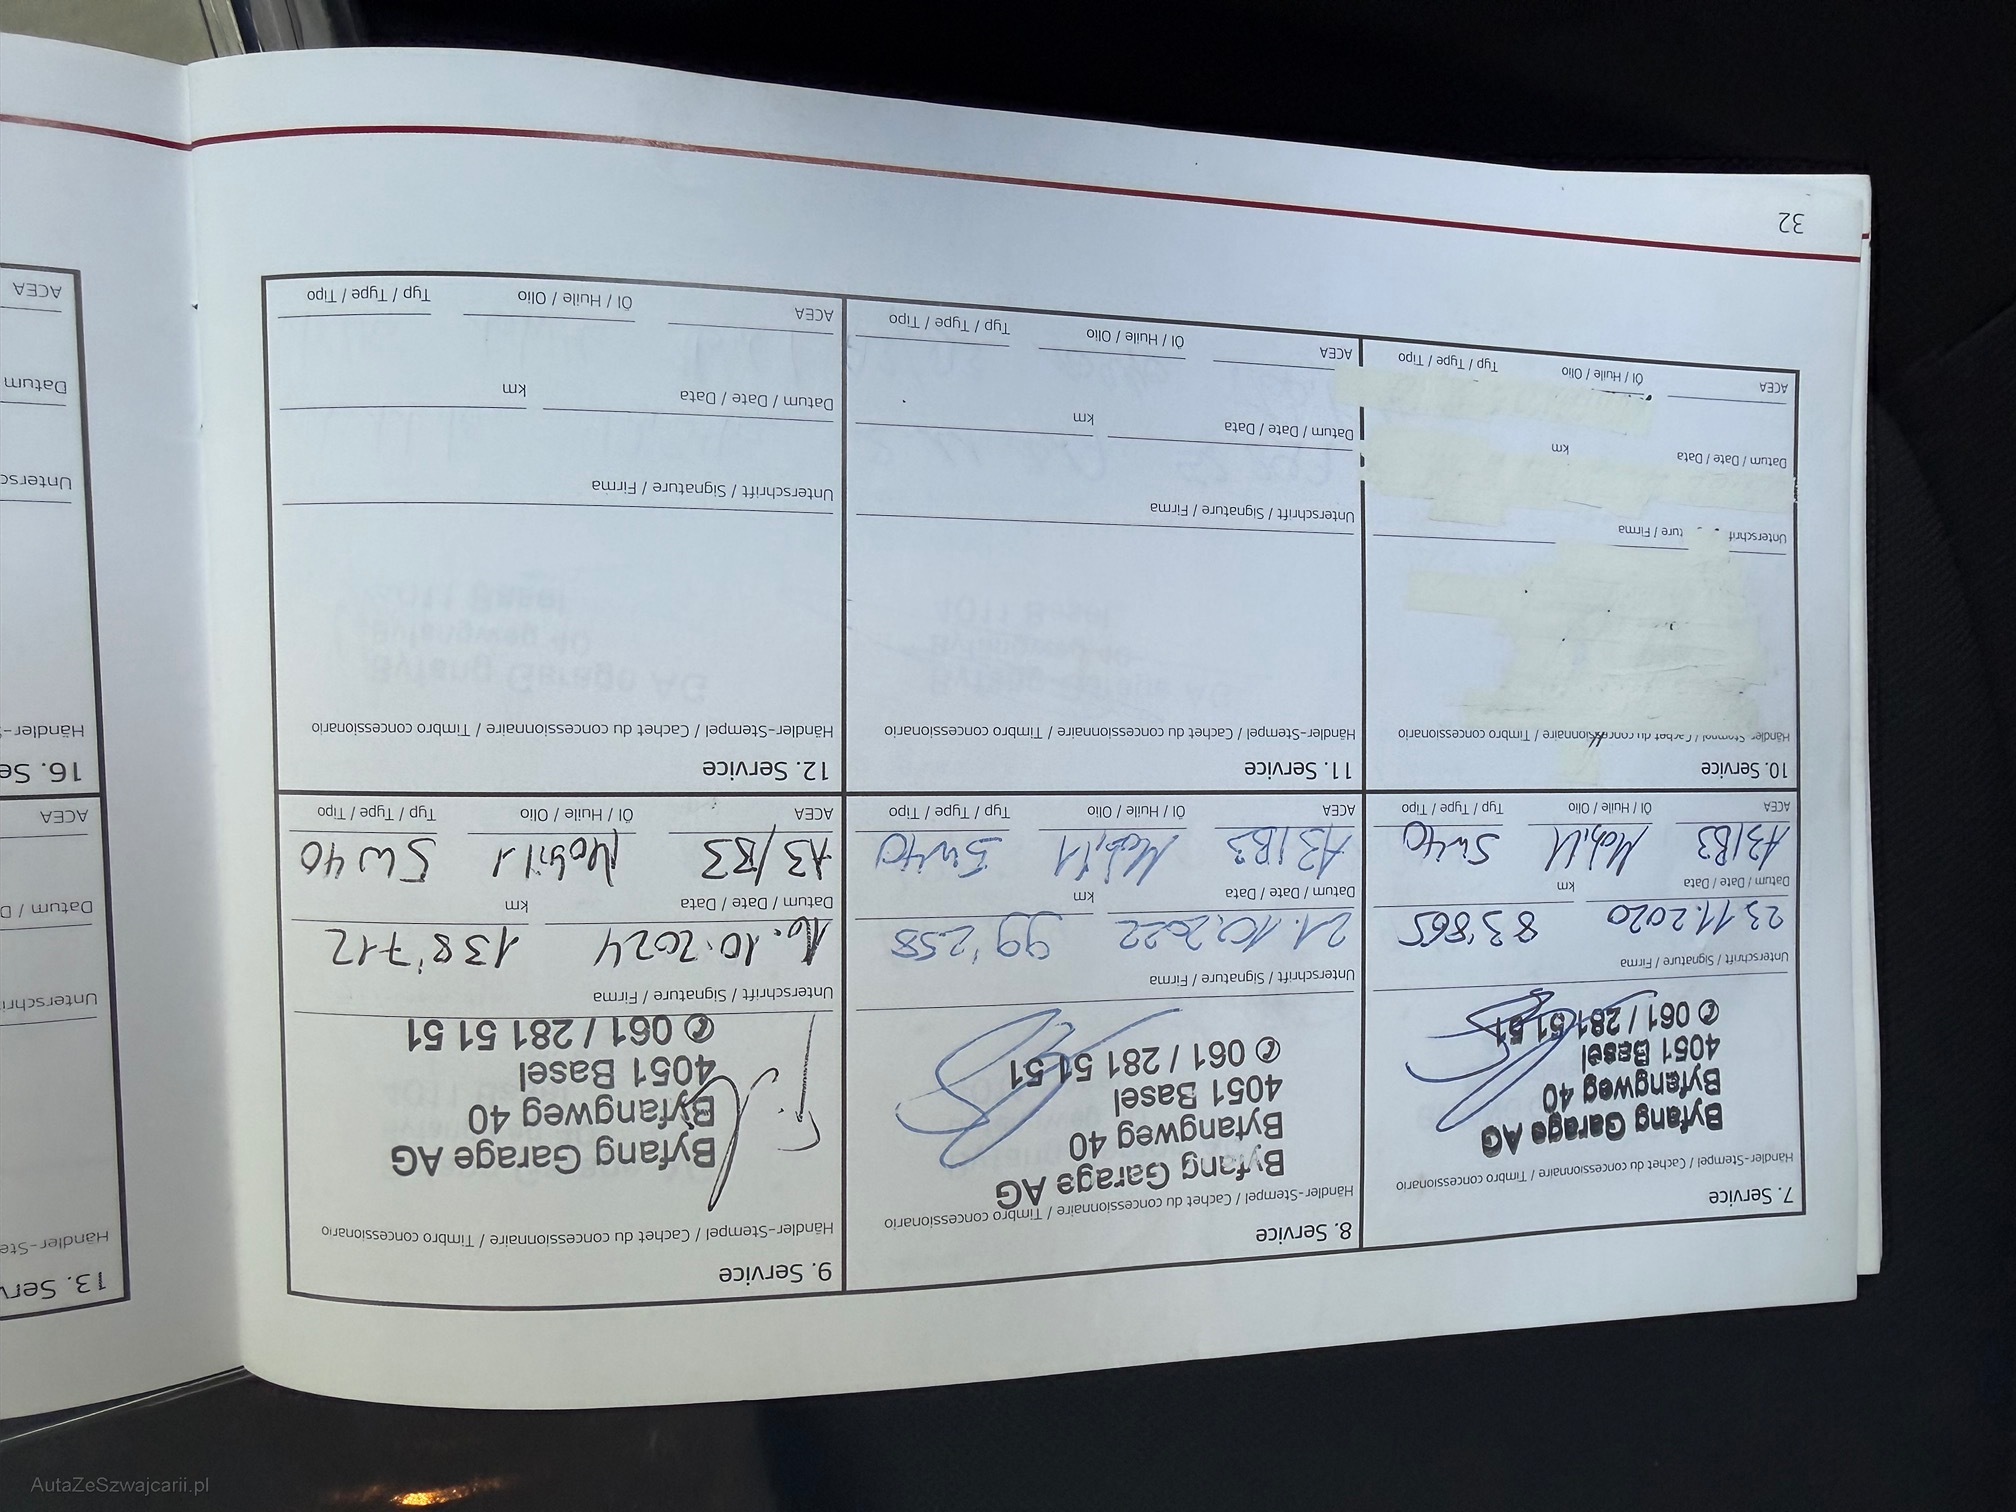 7. Service
Händler-Stempel / Cachet du concessionnaire / Timbro concessionario
Byfang Garage AG
Byfangweg 40
4051 Basel
✆ 061 / 281 51 51
Unterschrift / Signature / Firma
23.11.2020 83'865
Datum / Date / Data km
A3/B3 Mobil 1 5w40
ACEA Öl / Huile / Olio Typ / Type / Tipo
8. Service
Händler-Stempel / Cachet du concessionnaire / Timbro concessionario
Byfang Garage AG
Byfangweg 40
4051 Basel
✆ 061 / 281 51 51
Unterschrift / Signature / Firma
21.10.2022 99'258
Datum / Date / Data km
A3/B3 Mobil 1 5w40
ACEA Öl / Huile / Olio Typ / Type / Tipo
9. Service
Händler-Stempel / Cachet du concessionnaire / Timbro concessionario
Byfang Garage AG
Byfangweg 40
4051 Basel
✆ 061 / 281 51 51
Unterschrift / Signature / Firma
16.10.2024 138'712
Datum / Date / Data km
A3/B3 Mobil 1 5W40
ACEA Öl / Huile / Olio Typ / Type / Tipo
10. Service
Händler Cachet du concessionnaire / Timbro concessionario
Unterschrif ture / Firma
Datum / Date / Data km
ACEA Öl / Huile / Olio Typ / Type / Tipo
11. Service
Händler-Stempel / Cachet du concessionnaire / Timbro concessionario
Unterschrift / Signature / Firma
Datum / Date / Data km
ACEA Öl / Huile / Olio Typ / Type / Tipo
12. Service
Händler-Stempel / Cachet du concessionnaire / Timbro concessionario
Unterschrift / Signature / Firma
Datum / Date / Data km
ACEA Öl / Huile / Olio Typ / Type / Tipo
32
13. Serv
Händler-Ste
Unterschri
Datum / D
ACEA
16. Se
Händler-
Untersc
Datum
ACEA
AutaZeSzwajcarii.pl